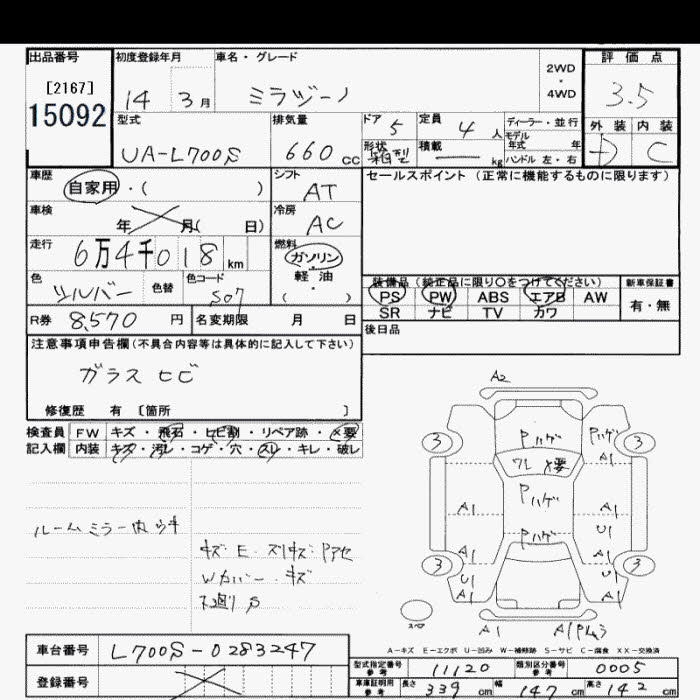 出品番号 初度登録年月 車名・グレード 2WD・4WD 評価点
[2167] 14 3月 ミラジーノ 3.5
15092
型式 排気量 ドア 5 定員 4人 ディーラー・並行 外装 内装
UA-L700S 660cc 形状 箱型 積載 ― kg モデル年式 年 D C
ハンドル 左・右
車歴 自家用・( ) シフト AT セールスポイント (正常に機能するものに限ります)
車検 年 月( 日) 冷房 AC
走行 6万4千018km 燃料 ガソリン
軽・油
( )
色 シルバー 色替 色コード S07
装備品 (純正品に限り○をつけてください) 新車保証書
PS PW ABS エアB AW 有・無
SR ナビ TV カワ
R券 8,570円 名変期限 月 日 後日品
注意事項申告欄(不具合内容等は具体的に記入して下さい)
ガラス ヒビ
修復歴 有 〔箇所 〕
検査員 FW キズ・飛石・ヒビ割・リペア跡・×要
記入欄 内装 キズ・汚レ・コゲ・穴・スレ・キレ・破レ
ルームミラー内ウキ
キズ・E・スリキズ・Pアセ
Wカバー・キズ
A2
3 Pハゲ Pハゲ 3
A1
フレ ×要
Pハゲ
A1 A1
Pハゲ U1
A1 A1
3 3
U1 U1
A1 A1
A1 A1
A-キズ E-エクボ U-凹み W-補修跡 S-サビ C-腐食 XX-交換済
車台番号 L700S-0283247
登録番号
型式指定番号 参考 11120 類別区分番号 参考 0005
車庫証明用 参考 長さ 339cm 幅 147cm 高さ 142cm